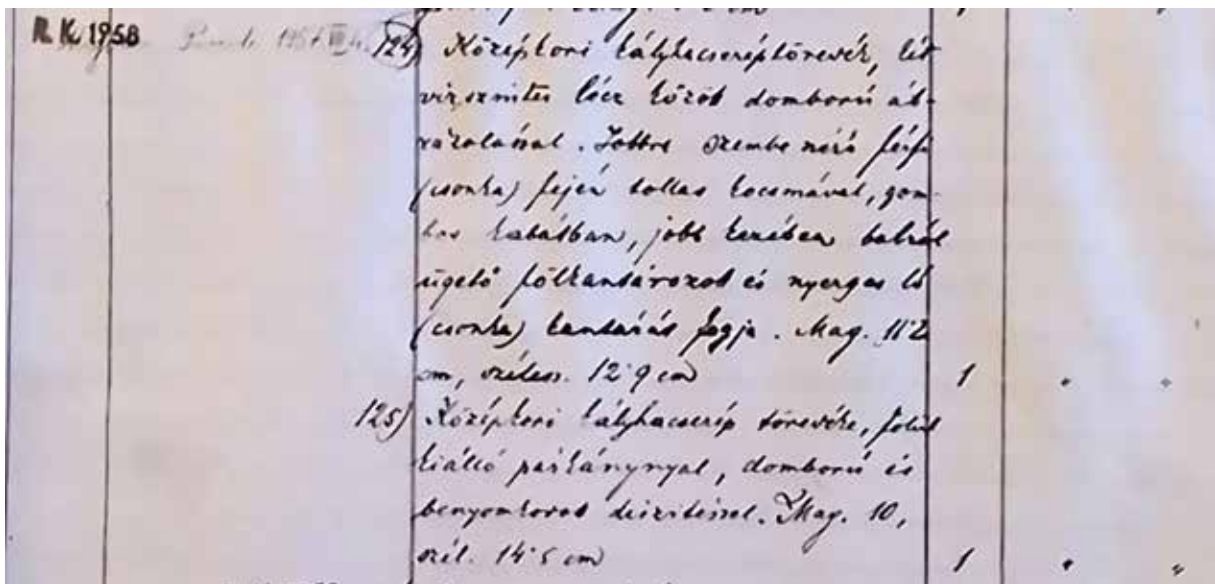 R. K. 1958
124) Középkori kályhacseréptöredék, két
vizszintes lécz között domború áb-
rázolással. Jobbra szembe néző férfi
(csonka) fején tollas kocsmával, gom-
bos kabátban, jobb kezében balról
ügető fölkantározott és nyerges ló
(csonka) kantárát fogja. Mag. 11·2
cm, széless. 12·9 cm 1 " "
125) Középkori kályhacserép töredéke, fölül
kiálló párkánynyal, domború és
benyomkodott díszítéssel. Mag. 10,
szél. 14·5 cm 1 " "